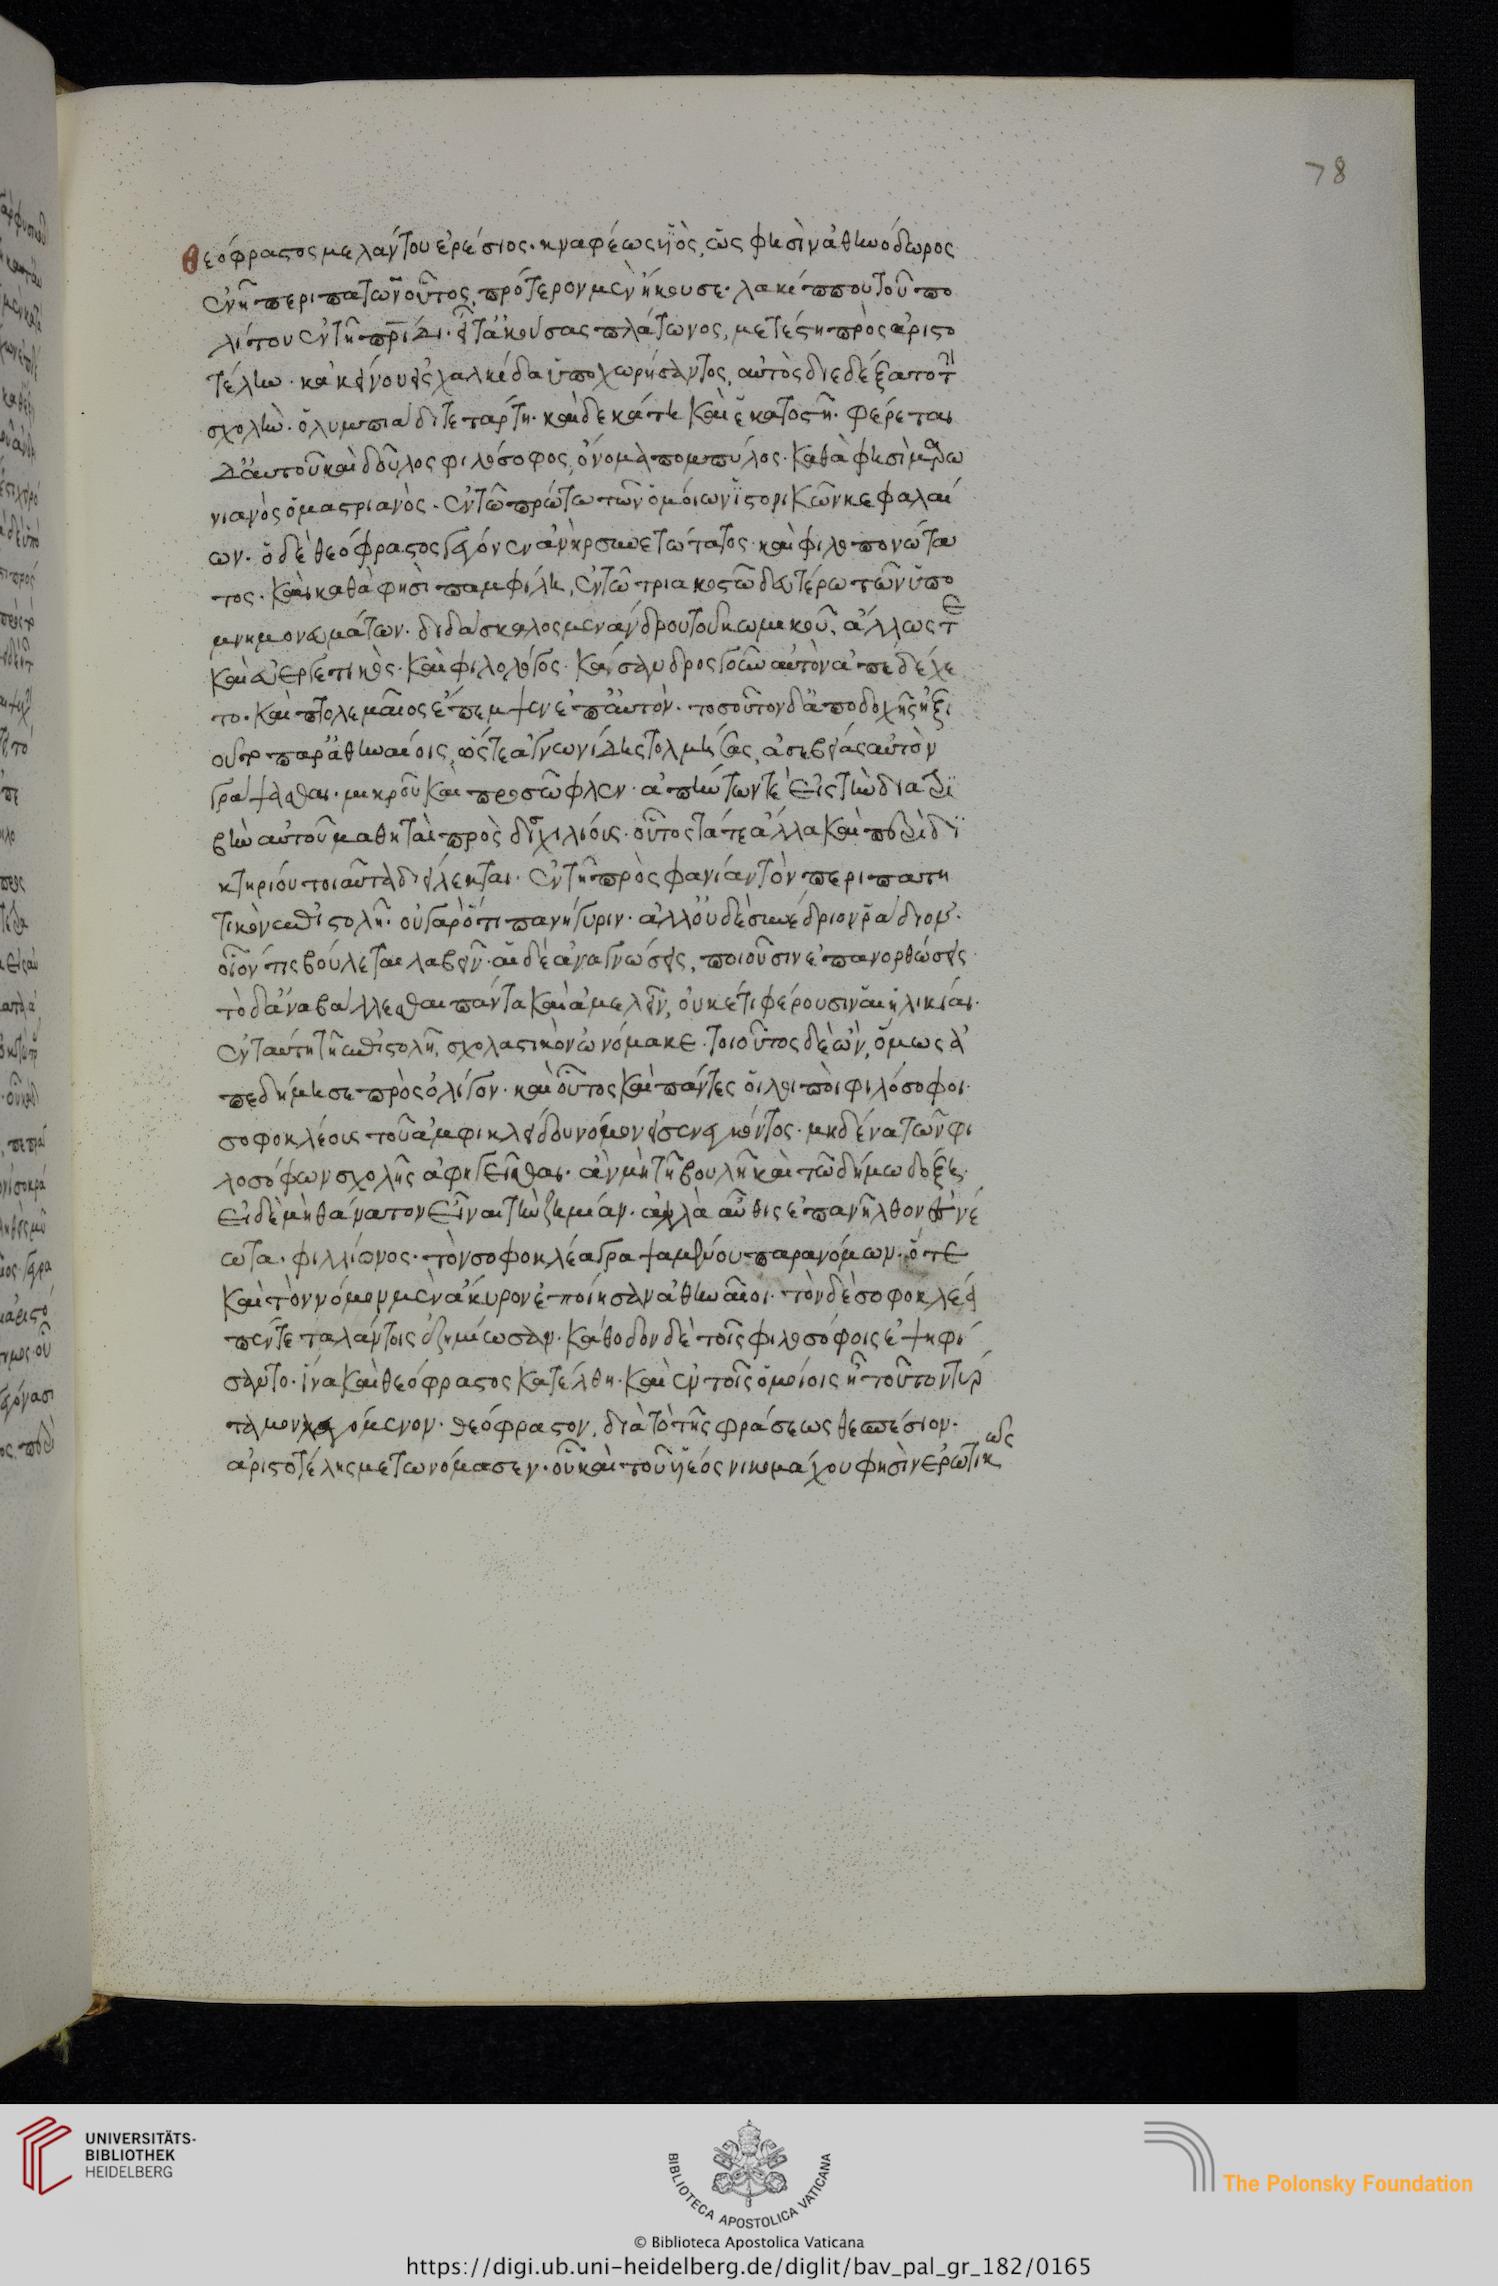 78
Θεόφραστος μελάντου ἐρέσιος· κναφέως ὑϊὸς, ὥς φησὶν ἀθηνόδωρος
ἐν ἢ περιπατων οὗτος, πρότερον μὲν ἤκουσε λακίππου τοῦ πο
λίτου ἐν τῆ πρίδι· εἶτ ἀκούσας πλάτωνος, μετέστη πρὸς ἀριστο
τέλην· κἀκείνου εἰς χαλκίδα ὑποχωρήσαντος, αὐτὸς διεδέξατο τ
σχολὴν· ὀλυμπιάδι τετάρτη· καὶ δεκάτη καὶ ἑκατοστῆ· φέρεται
δ αὐτοῦ καὶ δοῦλος φιλόσοφος, ὄνομα πομπύλος· καθὰ φησὶ μυρω
νιανὸς ὁ μαστριανὸς· ἐν τῶ πρώτω τῶν ὁμοίων ἱστορικῶν κεφαλαί
ων· ὁ δὲ θεόφραστος γέγονεν ἀνὴρ συνετώτατος· καὶ φιλοπονώτα
τος· καὶ καθὰ φησὶ παμφίλη, ἐν τῶ τριακοστῶ δευτέρω τῶν ὑπο
μνημονευμάτων· διδάσκαλος μενάνδρου τοῦ κωμικοῦ, ἄλλως τε
καὶ εὐεργετικὸς· καὶ φιλολόγος· κάσανδρος γοῦν αὐτὸν ἀπεδέχε
το· καὶ πτολεμαῖος ἔπεμψεν ἐπ αὐτὸν· τοσοῦτον δ ἀποδοχῆς ἠξι
οῦτο παρ ἀθηναίοις, ὥστε ἀγνωνίδης τολμήσας, ἀσεβείας αὐτὸν
γράψασθαι· μικροῦ καὶ προσῶφλεν· ἀπήντων τὲ εἰς τὴν διατρι
βὴν αὐτοῦ μαθηταὶ πρὸς δισχιλίους· οὗτος τά τε ἄλλα καὶ περὶ δι
κτηρίου τοιαῦτα διείλεκται· ἐν τῆ πρὸς φανίαν τὸν περιπατη
τικὸν ἐπιστολῆ· οὐ γὰρ ὅτι πανήγυριν· ἀλλ οὐδὲ συνέδριον ῥάδιον·
οἷόν τις βούλεται λαβεῖν· αἱ δὲ ἀναγνώσεις, ποιοῦσιν ἐπανορθώσεις·
τὸ δ ἀναβάλλεσθαι πάντα καὶ ἀμελεῖν, οὐκέτι φέρουσιν αἱ ἡλικίαι·
ἐν ταύτη τῆ ἐπιστολῆ, σχολαστικὸν ὠνόμακε· τοιοῦτος δὲ ὢν, ὅμως ἀ
πεδήμησε πρὸς ὀλίγον· καὶ οὗτος καὶ πάντες οἱ λοιποὶ φιλόσοφοι·
σοφοκλέους τοῦ ἀμφικλείδου νόμον εἰσενεγκόντος· μηδένα τῶν φι
λοσόφων σχολῆς ἀφηγεῖσθαι· ἂν μὴ τῆ βουλῆ καὶ τῶ δήμω δόξη·
εἰ δὲ μὴ θάνατον εἶναι τὴν ζημίαν· ἀλλὰ αὖθις ἐπανῆλθον νέ
ωτα· φιλλίωνος· τὸν σοφοκλέα γραψαμένου παρανόμων· ὅτε
καὶ τὸν νόμον μὲν ἄκυρον ἐποίησαν ἀθηναῖοι· τὸν δὲ σοφοκλέα
πέντε ταλάντοις ἐζημίωσαν· κάθοδον δὲ τοῖς φιλοσόφοις ἐψηφί
σαντο· ἵνα καὶ θεόφραστος κατέλθη· καὶ ἐν τοῖς ὁμοίοις ἦ τοῦτον τυρ
ταμον λεγόμενον· θεόφραστον, διὰ τὸ τῆς φράσεως θεσπέσιον·
ἀριστοτέλης μετωνόμασεν· οὗ καὶ τοῦ ὑέος νικομάχου φησὶν ἐρωτικῶς
UNIVERSITÄTS-
BIBLIOTHEK
HEIDELBERG
BIBLIOTECA APOSTOLICA VATICANA
The Polonsky Foundation
© Biblioteca Apostolica Vaticana
https://digi.ub.uni-heidelberg.de/diglit/bav_pal_gr_182/0165